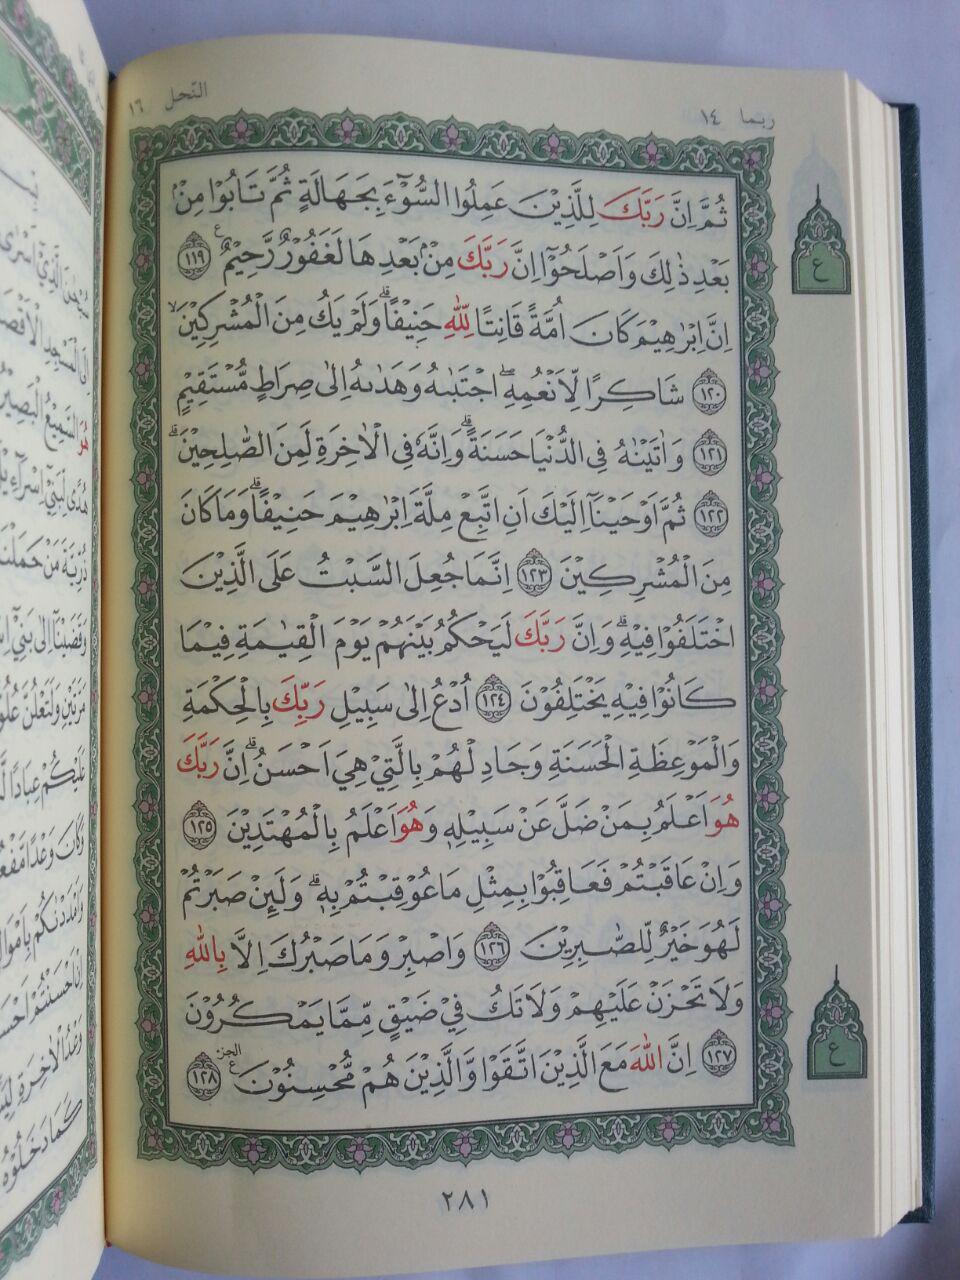 النّحل ١٦
ربما ١٤
ثُمَّ اِنَّ رَبَّكَ لِلَّذِيْنَ عَمِلُوا السُّوْٓءَ بِجَهَالَةٍ ثُمَّ تَابُوْا مِنْۢ
بَعْدِ ذٰلِكَ وَاَصْلَحُوْٓا اِنَّ رَبَّكَ مِنْۢ بَعْدِهَا لَغَفُوْرٌ رَّحِيْمٌ ۝١١٩ ع
اِنَّ اِبْرٰهِيْمَ كَانَ اُمَّةً قَانِتًا لِّلّٰهِ حَنِيْفًاۗ وَلَمْ يَكُ مِنَ الْمُشْرِكِيْنَۙ
۝١٢٠ شَاكِرًا لِّاَنْعُمِهِۖ اجْتَبٰىهُ وَهَدٰىهُ اِلٰى صِرَاطٍ مُّسْتَقِيْمٍ
۝١٢١ وَاٰتَيْنٰهُ فِى الدُّنْيَا حَسَنَةًۗ وَاِنَّهٗ فِى الْاٰخِرَةِ لَمِنَ الصّٰلِحِيْنَۗ
۝١٢٢ ثُمَّ اَوْحَيْنَآ اِلَيْكَ اَنِ اتَّبِعْ مِلَّةَ اِبْرٰهِيْمَ حَنِيْفًاۗ وَمَا كَانَ
مِنَ الْمُشْرِكِيْنَ ۝١٢٣ اِنَّمَا جُعِلَ السَّبْتُ عَلَى الَّذِيْنَ
اخْتَلَفُوْا فِيْهِۗ وَاِنَّ رَبَّكَ لَيَحْكُمُ بَيْنَهُمْ يَوْمَ الْقِيٰمَةِ فِيْمَا
كَانُوْا فِيْهِ يَخْتَلِفُوْنَ ۝١٢٤ اُدْعُ اِلٰى سَبِيْلِ رَبِّكَ بِالْحِكْمَةِ
وَالْمَوْعِظَةِ الْحَسَنَةِ وَجَادِلْهُمْ بِالَّتِيْ هِيَ اَحْسَنُۗ اِنَّ رَبَّكَ
هُوَ اَعْلَمُ بِمَنْ ضَلَّ عَنْ سَبِيْلِهٖ وَهُوَ اَعْلَمُ بِالْمُهْتَدِيْنَ ۝١٢٥
وَاِنْ عَاقَبْتُمْ فَعَاقِبُوْا بِمِثْلِ مَا عُوْقِبْتُمْ بِهٖۗ وَلَىِٕنْ صَبَرْتُمْ
لَهُوَ خَيْرٌ لِّلصّٰبِرِيْنَ ۝١٢٦ وَاصْبِرْ وَمَا صَبْرُكَ اِلَّا بِاللّٰهِ
وَلَا تَحْزَنْ عَلَيْهِمْ وَلَا تَكُ فِيْ ضَيْقٍ مِّمَّا يَمْكُرُوْنَ
۝١٢٧ اِنَّ اللّٰهَ مَعَ الَّذِيْنَ اتَّقَوْا وَّالَّذِيْنَ هُمْ مُّحْسِنُوْنَ ۝١٢٨ الجزء ع
ع
ع
٢٨١